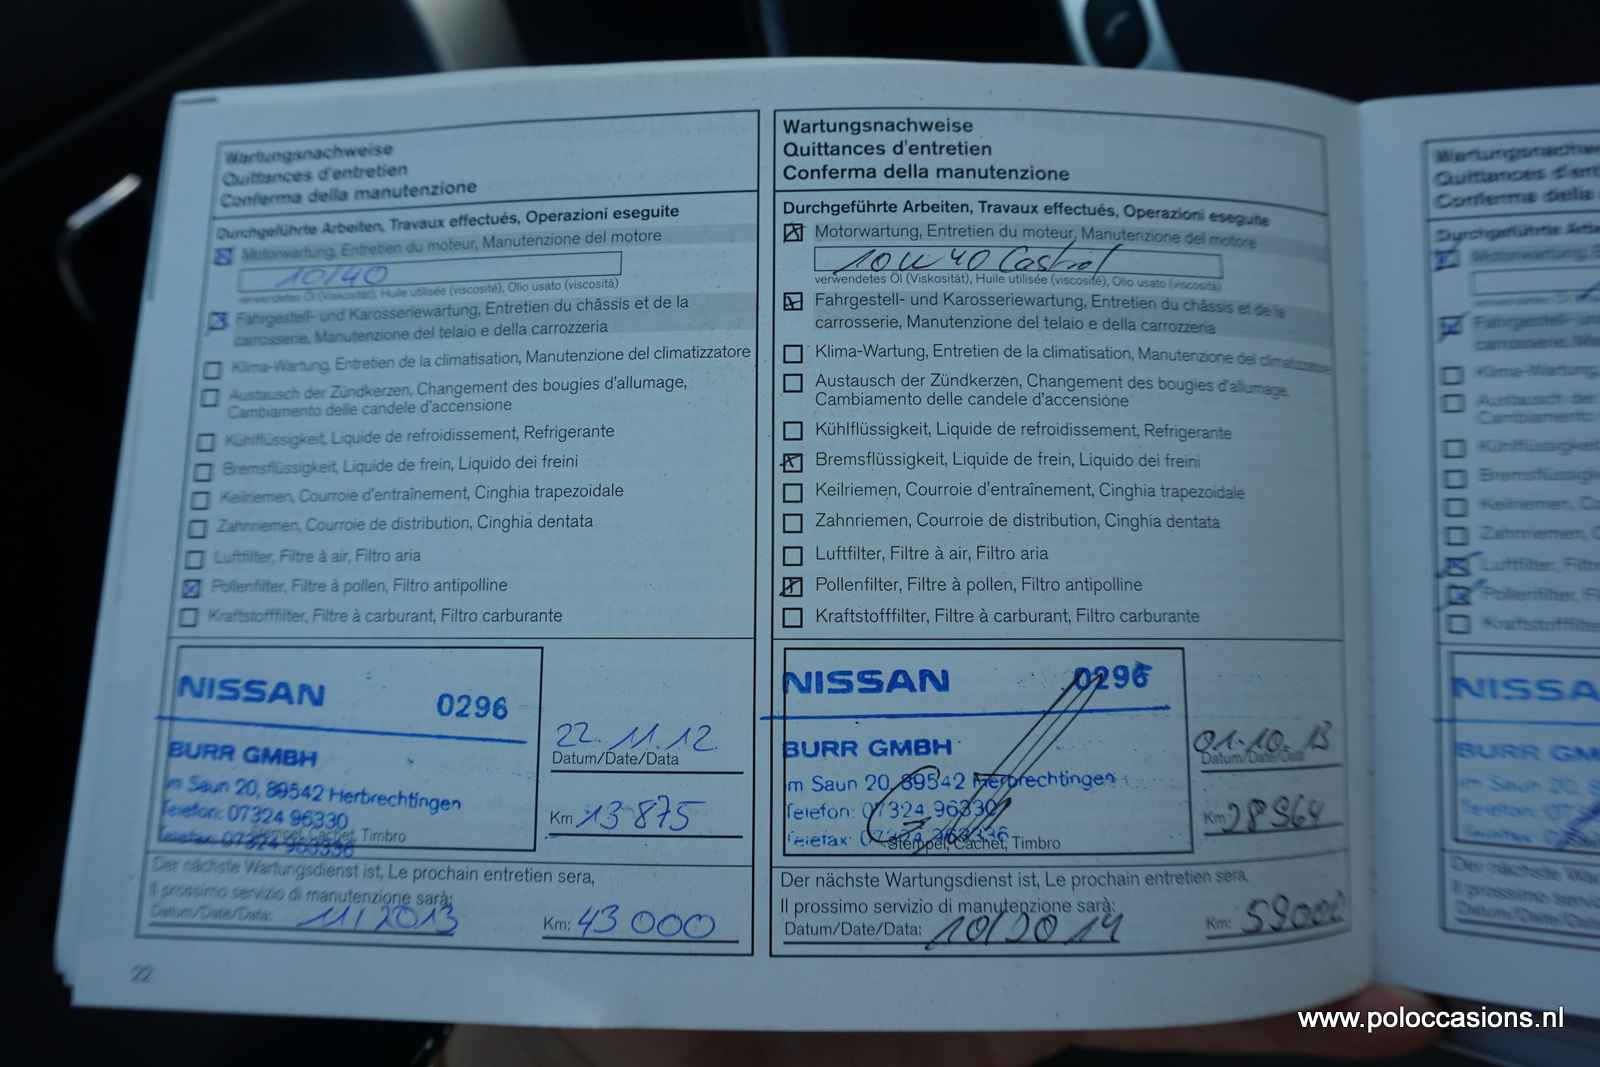 Wartungsnachweise
Quittances d'entretien
Conferma della manutenzione
Durchgeführte Arbeiten, Travaux effectués, Operazioni eseguite
Motorwartung, Entretien du moteur, Manutenzione del motore
10/40
verwendetes Öl (Viskosität), Huile utilisée (viscosité), Olio usato (viscosità)
Fahrgestell- und Karosseriewartung, Entretien du châssis et de la
carrosserie, Manutenzione del telaio e della carrozzeria
Klima-Wartung, Entretien de la climatisation, Manutenzione del climatizzatore
Austausch der Zündkerzen, Changement des bougies d'allumage,
Cambiamento delle candele d'accensione
Kühlflüssigkeit, Liquide de refroidissement, Refrigerante
Bremsflüssigkeit, Liquide de frein, Liquido dei freini
Keilriemen, Courroie d'entraînement, Cinghia trapezoidale
Zahnriemen, Courroie de distribution, Cinghia dentata
Luftfilter, Filtre à air, Filtro aria
Pollenfilter, Filtre à pollen, Filtro antipolline
Kraftstofffilter, Filtre à carburant, Filtro carburante
NISSAN 0296
BURR GMBH
Im Saun 20, 89542 Herbrechtingen
Telefon: 07324 96330
Telefax: 07324 963336
Stempel, Cachet, Timbro
22.11.12
Datum/Date/Data
Km 13875
Der nächste Wartungsdienst ist, Le prochain entretien sera,
Il prossimo servizio di manutenzione sarà:
Datum/Date/Data: 11/2013 Km: 43000
22
Wartungsnachweise
Quittances d'entretien
Conferma della manutenzione
Durchgeführte Arbeiten, Travaux effectués, Operazioni eseguite
Motorwartung, Entretien du moteur, Manutenzione del motore
10W40 Castrol
verwendetes Öl (Viskosität), Huile utilisée (viscosité), Olio usato (viscosità)
Fahrgestell- und Karosseriewartung, Entretien du châssis et de la
carrosserie, Manutenzione del telaio e della carrozzeria
Klima-Wartung, Entretien de la climatisation, Manutenzione del climatizzatore
Austausch der Zündkerzen, Changement des bougies d'allumage,
Cambiamento delle candele d'accensione
Kühlflüssigkeit, Liquide de refroidissement, Refrigerante
Bremsflüssigkeit, Liquide de frein, Liquido dei freini
Keilriemen, Courroie d'entraînement, Cinghia trapezoidale
Zahnriemen, Courroie de distribution, Cinghia dentata
Luftfilter, Filtre à air, Filtro aria
Pollenfilter, Filtre à pollen, Filtro antipolline
Kraftstofffilter, Filtre à carburant, Filtro carburante
NISSAN 0296
BURR GMBH
Im Saun 20, 89542 Herbrechtingen
Telefon: 07324 96330
Telefax: 07324 963336
Stempel, Cachet, Timbro
01.10.13
Datum/Date/Data
Km 28964
Der nächste Wartungsdienst ist, Le prochain entretien sera,
Il prossimo servizio di manutenzione sarà:
Datum/Date/Data: 10/2014 Km: 59000
Quittances
Conferma della
Klima-Wartung,
Austausch der
Cambiamento
Keilriemen,
Zahnriemen,
Luftfilter,
Pollenfilter,
BURR
www.poloccasions.nl